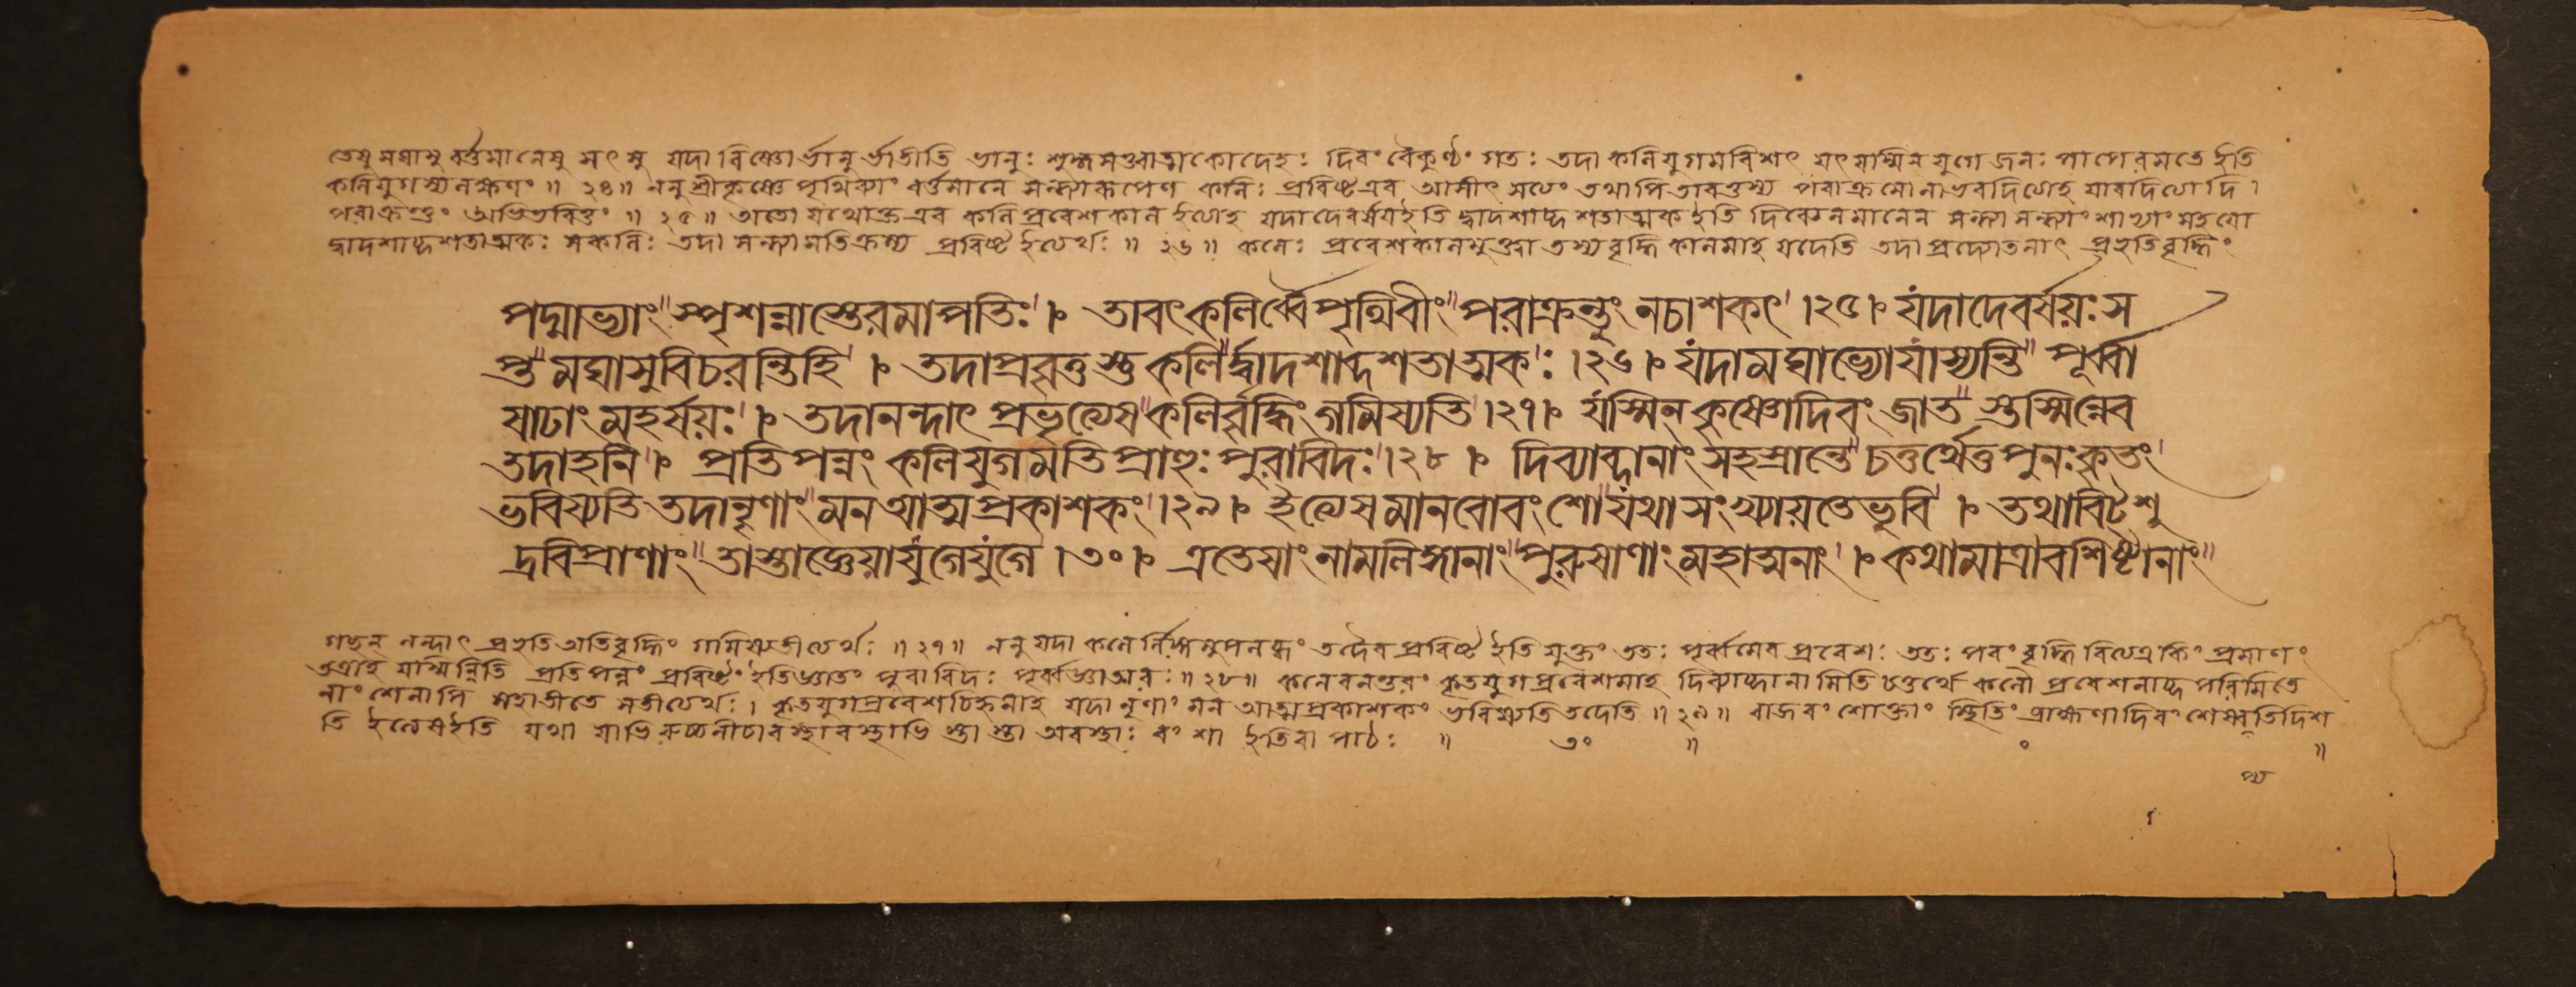 তেষু মঘাসু বর্ত্তমানেষু সৎসু যদা বিষ্ণোর্ভানুর্ভাতীতি ভানুঃ শুদ্ধসত্ত্বাত্মকোদেহঃ দিবং বৈকুণ্ঠং গতঃ তদা কলিযুগমবিশৎ যৎ যস্মিন যুগে জনঃ পাপে রমতে ইতি
কলিযুগস্য লক্ষণং ॥ ২৪॥ ননু শ্রীকৃষ্ণে পৃথিব্যাং বর্ত্তমানে সন্ধ্যারূপেণ কলিঃ প্রবিষ্ট এব আসীৎ সত্যং তথাপি তাবত্তস্য পরাক্রমো নাভবদিত্যাহ যাবদিত্যাদি।
পরাক্রন্তুং অভিভবিতুং ॥ ২৫॥ অতো যথোক্ত এব কলি প্রবেশ কাল ইত্যাহ যদা দেবর্ষয় ইতি দ্বাদশাব্দ শতাত্মক ইতি দিব্যেন মানেন সন্ধ্যা সন্ধ্যাংশাভ্যাং সহ যো
দ্বাদশাব্দশতাত্মকঃ স কলিঃ তদা সন্ধ্যামতিক্রম্য প্রবিষ্ট ইত্যর্থঃ ॥ ২৬॥ কলেঃ প্রবেশকালমুক্ত্বা তস্য বৃদ্ধি কালমাহ যদেতি তদা প্রদ্যোতনাৎ প্রভৃতি বৃদ্ধিং
পদ্মাভ্যাং স্পৃশন্নাস্তেরমাপতিঃ । তাবৎকলির্ব্বৈপৃথিবীং পরাক্রন্তুং নচাশকৎ ।২৫। যদাদেবর্ষয়ঃস
প্ত মঘাসুবিচরন্তিহি । তদাপ্রবৃত্তস্তুকলির্দ্বাদশাব্দশতাত্মকঃ ।২৬। যদামঘাভ্যোযাস্যন্তি পূর্ব্বা
ষাঢাং মহর্ষয়ঃ । তদানন্দাৎ প্রভৃত্যেষ কলির্বৃদ্ধিং গমিষ্যতি ।২৭। যস্মিন্ কৃষ্ণোদিবং জাত স্তস্মিন্নেব
তদাহনি । প্রতিপন্নং কলিযুগমতিপ্রাহুঃ পুরাবিদঃ ।২৮। দিব্যাব্দানাং সহস্রান্তে চতুর্থেতুপুনঃকৃতং
ভবিষ্যতি তদানৃণাং মন আত্মপ্রকাশকং ।২৯। ইত্যেষমানবোবংশো যথাসংখ্যায়তেভুবি । তথাবিট্শু
দ্রবিপ্রাণাং তাস্তাজ্ঞেয়াযুগেযুগে ।৩০। এতেষাং নামলিঙ্গানাং পুরুষাণাং মহাত্মনাং । কথামাত্রাবশিষ্টানাং
গচ্ছন্ নন্দাৎ প্রভৃতি অতিবৃদ্ধিং গমিষ্যতীত্যর্থঃ ॥ ২৭॥ ননু যদা কলের্লিঙ্গমুপলব্ধং তদৈব প্রবিষ্ট ইতি যুক্তং ততঃ পূর্ব্বমেব প্রবেশঃ ততঃ পরং বৃদ্ধি রিত্যত্র কিং প্রমাণং
তত্রাহ যস্মিন্নিতি প্রতিপন্নং প্রবিষ্টং ইতিজ্ঞাতং পুরাবিদঃ পূর্ব্বজ্ঞাতারঃ ॥ ২৮॥ কলেরনন্তরং কৃতযুগপ্রবেশমাহ দিব্যাব্দানামিতি চতুর্থে কলৌ প্রবেশনাব্দ পরিমিতে
নাংশেনাপি সহাতীতে সতীত্যর্থঃ। কৃতযুগপ্রবেশচিহ্নমাহ যদা নৃণাং মন আত্মপ্রকাশকং ভবিষ্যতি তদেতি ॥ ২৯॥ রাজবংশোক্তাং স্থিতিং ব্রাহ্মণাদিবংশেষ্বতিদিশ
তি ইত্যেষইতি যথা যাভিরুচ্চনীচাবস্থাবস্থাভি স্তা স্তা অবস্থাঃ বংশা ইতিবা পাঠঃ ॥ ৩০ ॥ ॥